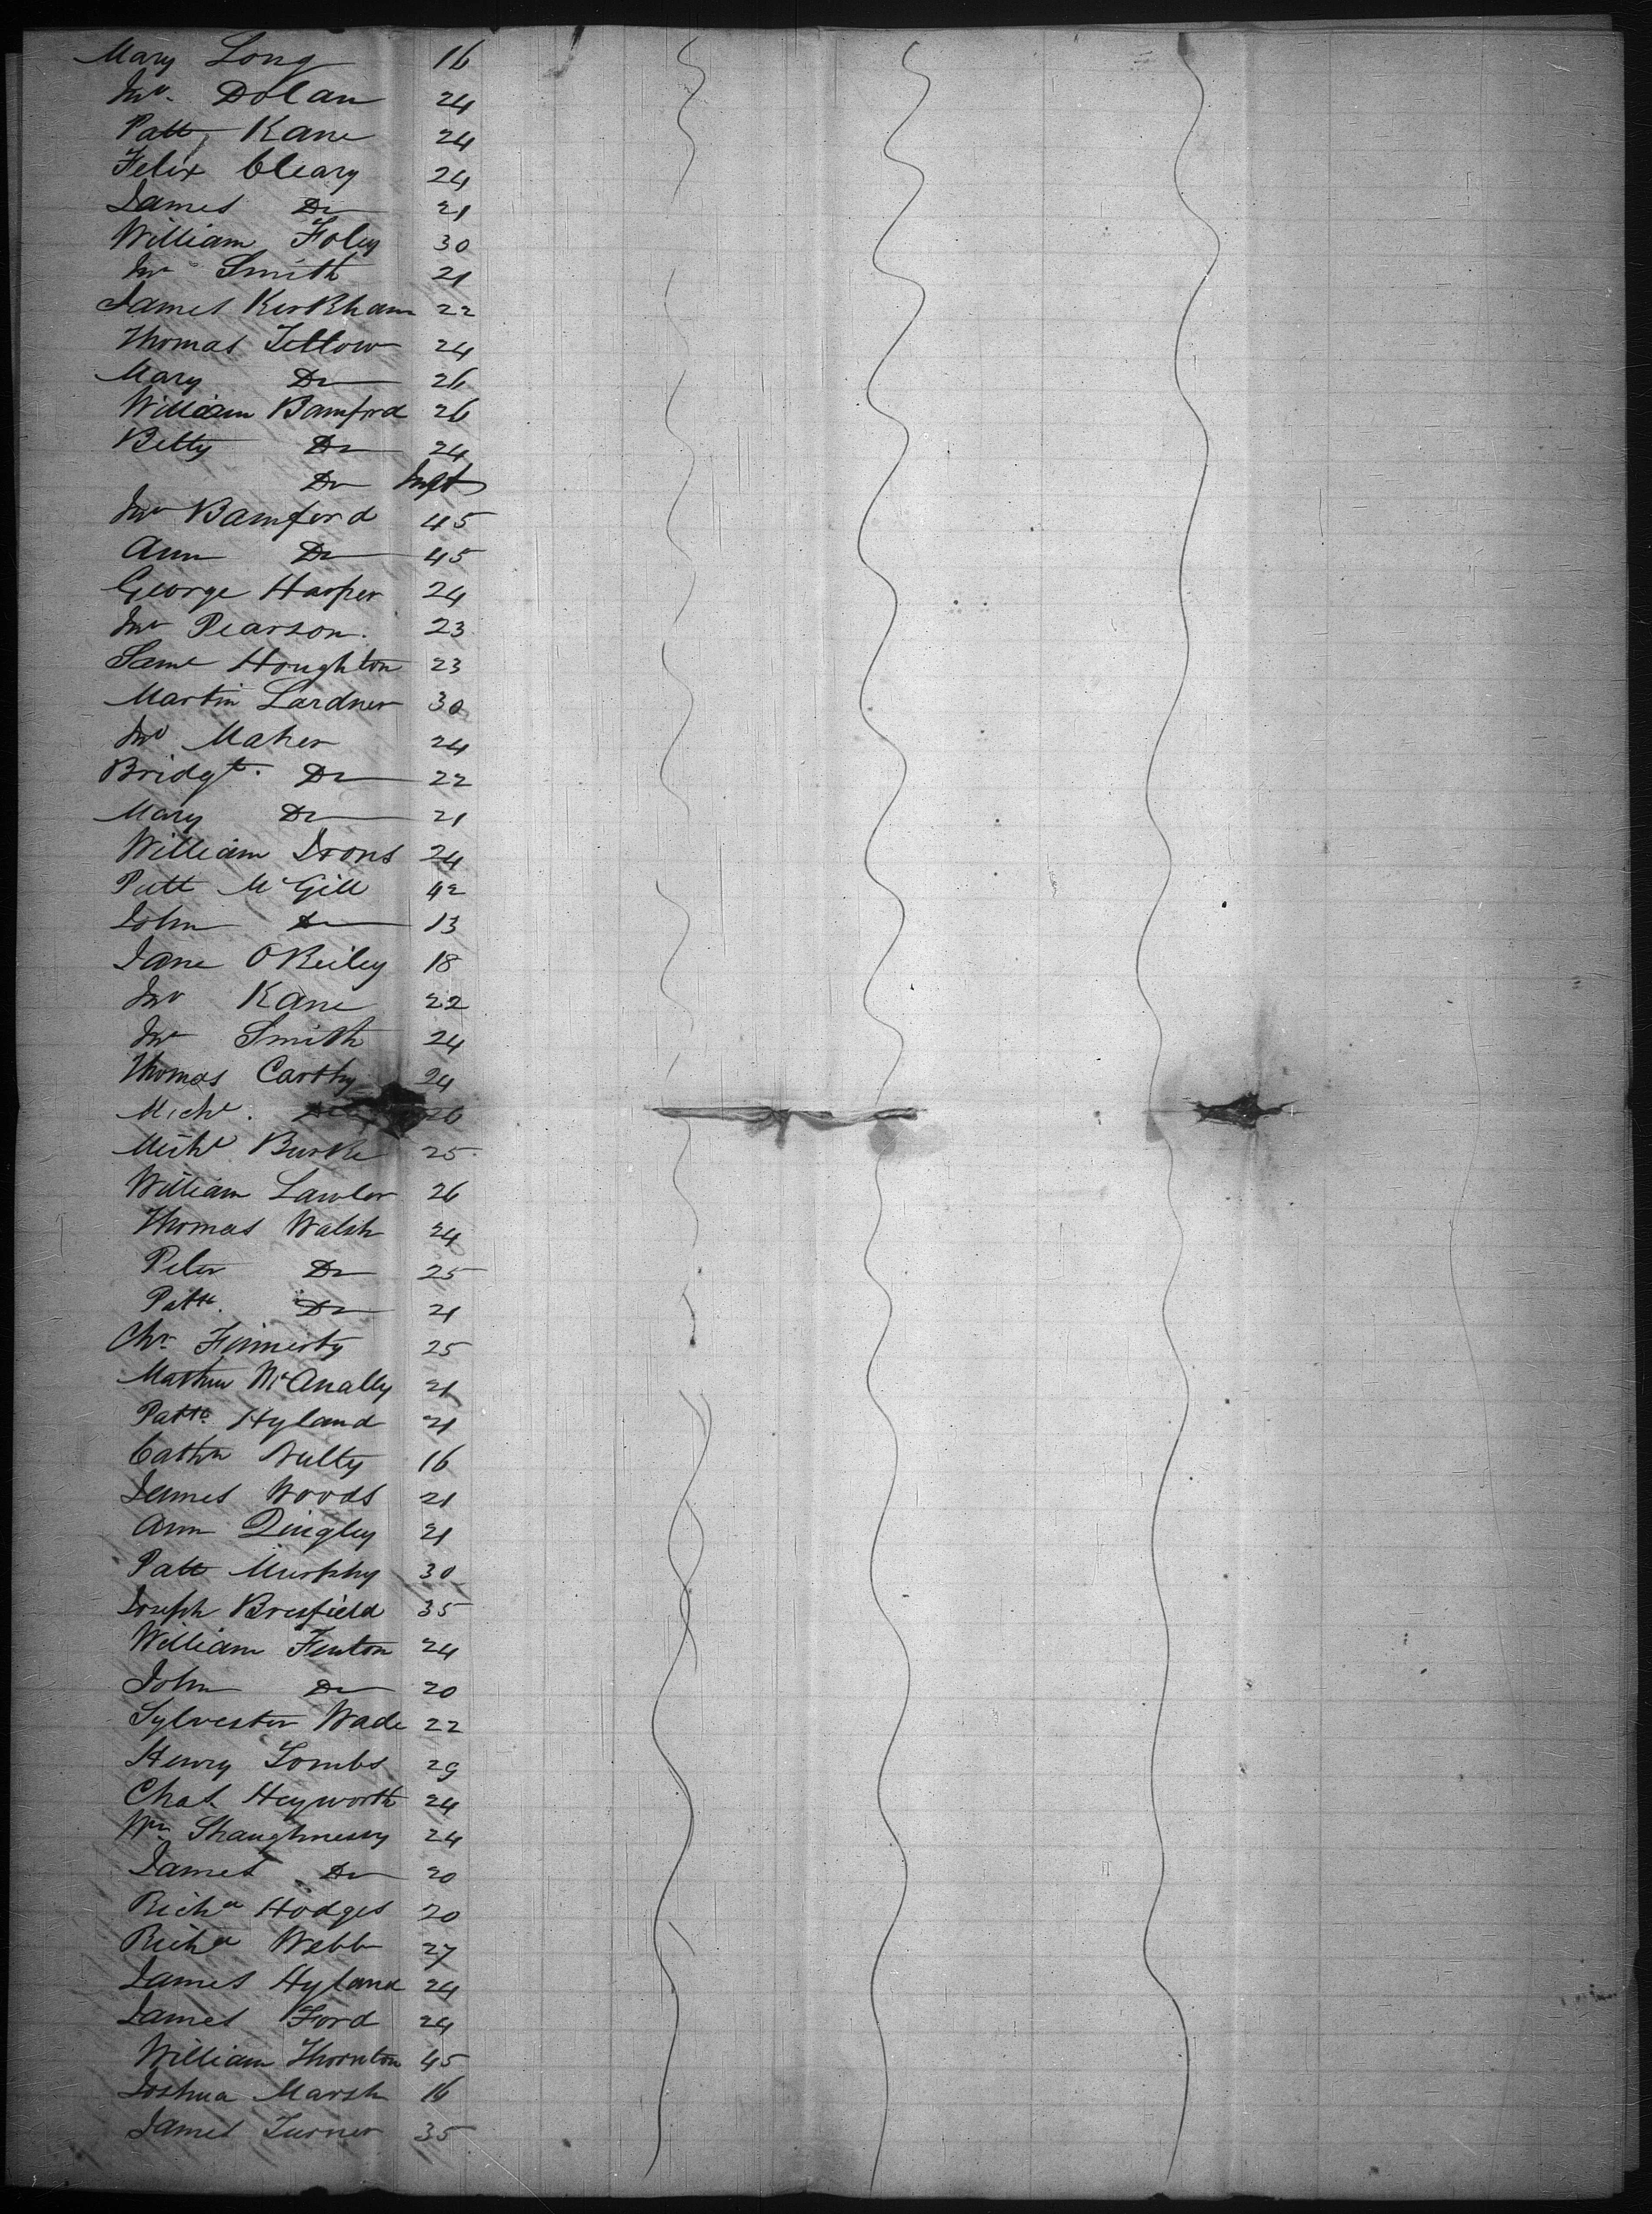 Mary Long 16
Jno. Dolan 24
Patt Kane 24
Felix Cleary 24
James Do 21
William Foley 30
Jno Smith 21
James Kirkham 22
Thomas Tetlow 24
Mary Do 26
William Bamford 26
Betty Do 24
Do Inft
Jno Bamford 45
Ann Do 45
George Harper 24
Jno Pearson. 23
Saml Houghton 23
Martin Lardner 30
Jno Maher 24
Bridgt. Do 22
Mary Do 21
William Irons 24
Patt McGill 42
John Do 13
Jane OReiley 18
Jno Kane 22
Jno Smith 24
Thomas Carthy 24
Michl. Do 26
Michl Burke 25
William Lawler 26
Thomas Walsh 24
Peter Do 25
Patk. Do 21
Chr Finnerty 25
Mathew McAnally 21
Patk. Hyland 21
Cathn Nulty 16
James Woods 21
Ann Quigley 21
Patt Murphy 30
Joseph Bresfield 35
William Fenton 24
John Do 20
Sylvester Wade 22
Henry Tombs 29
Chas. Heyworth 24
Wm Shaughnessy 24
James Do 20
Richd Hodges 20
Richd Webb 27
James Hyland 24
James Ford 24
William Thornton 45
Joshua Marsh 16
James Turner 35